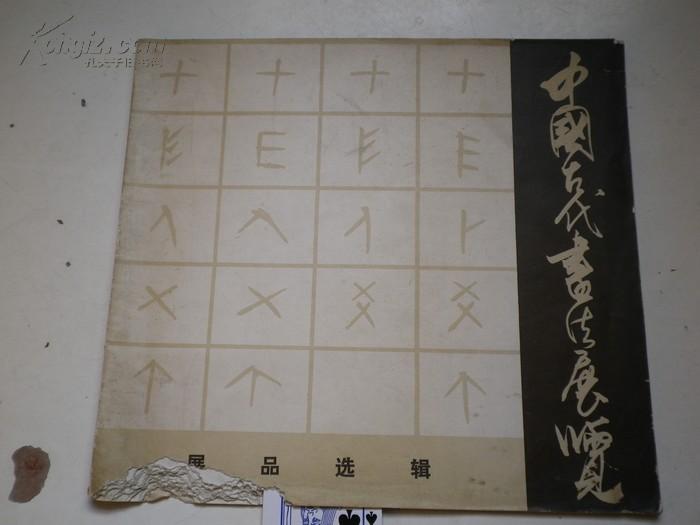 中國古代書法展覽
展品选辑
Kongfz.com
孔夫子旧书网